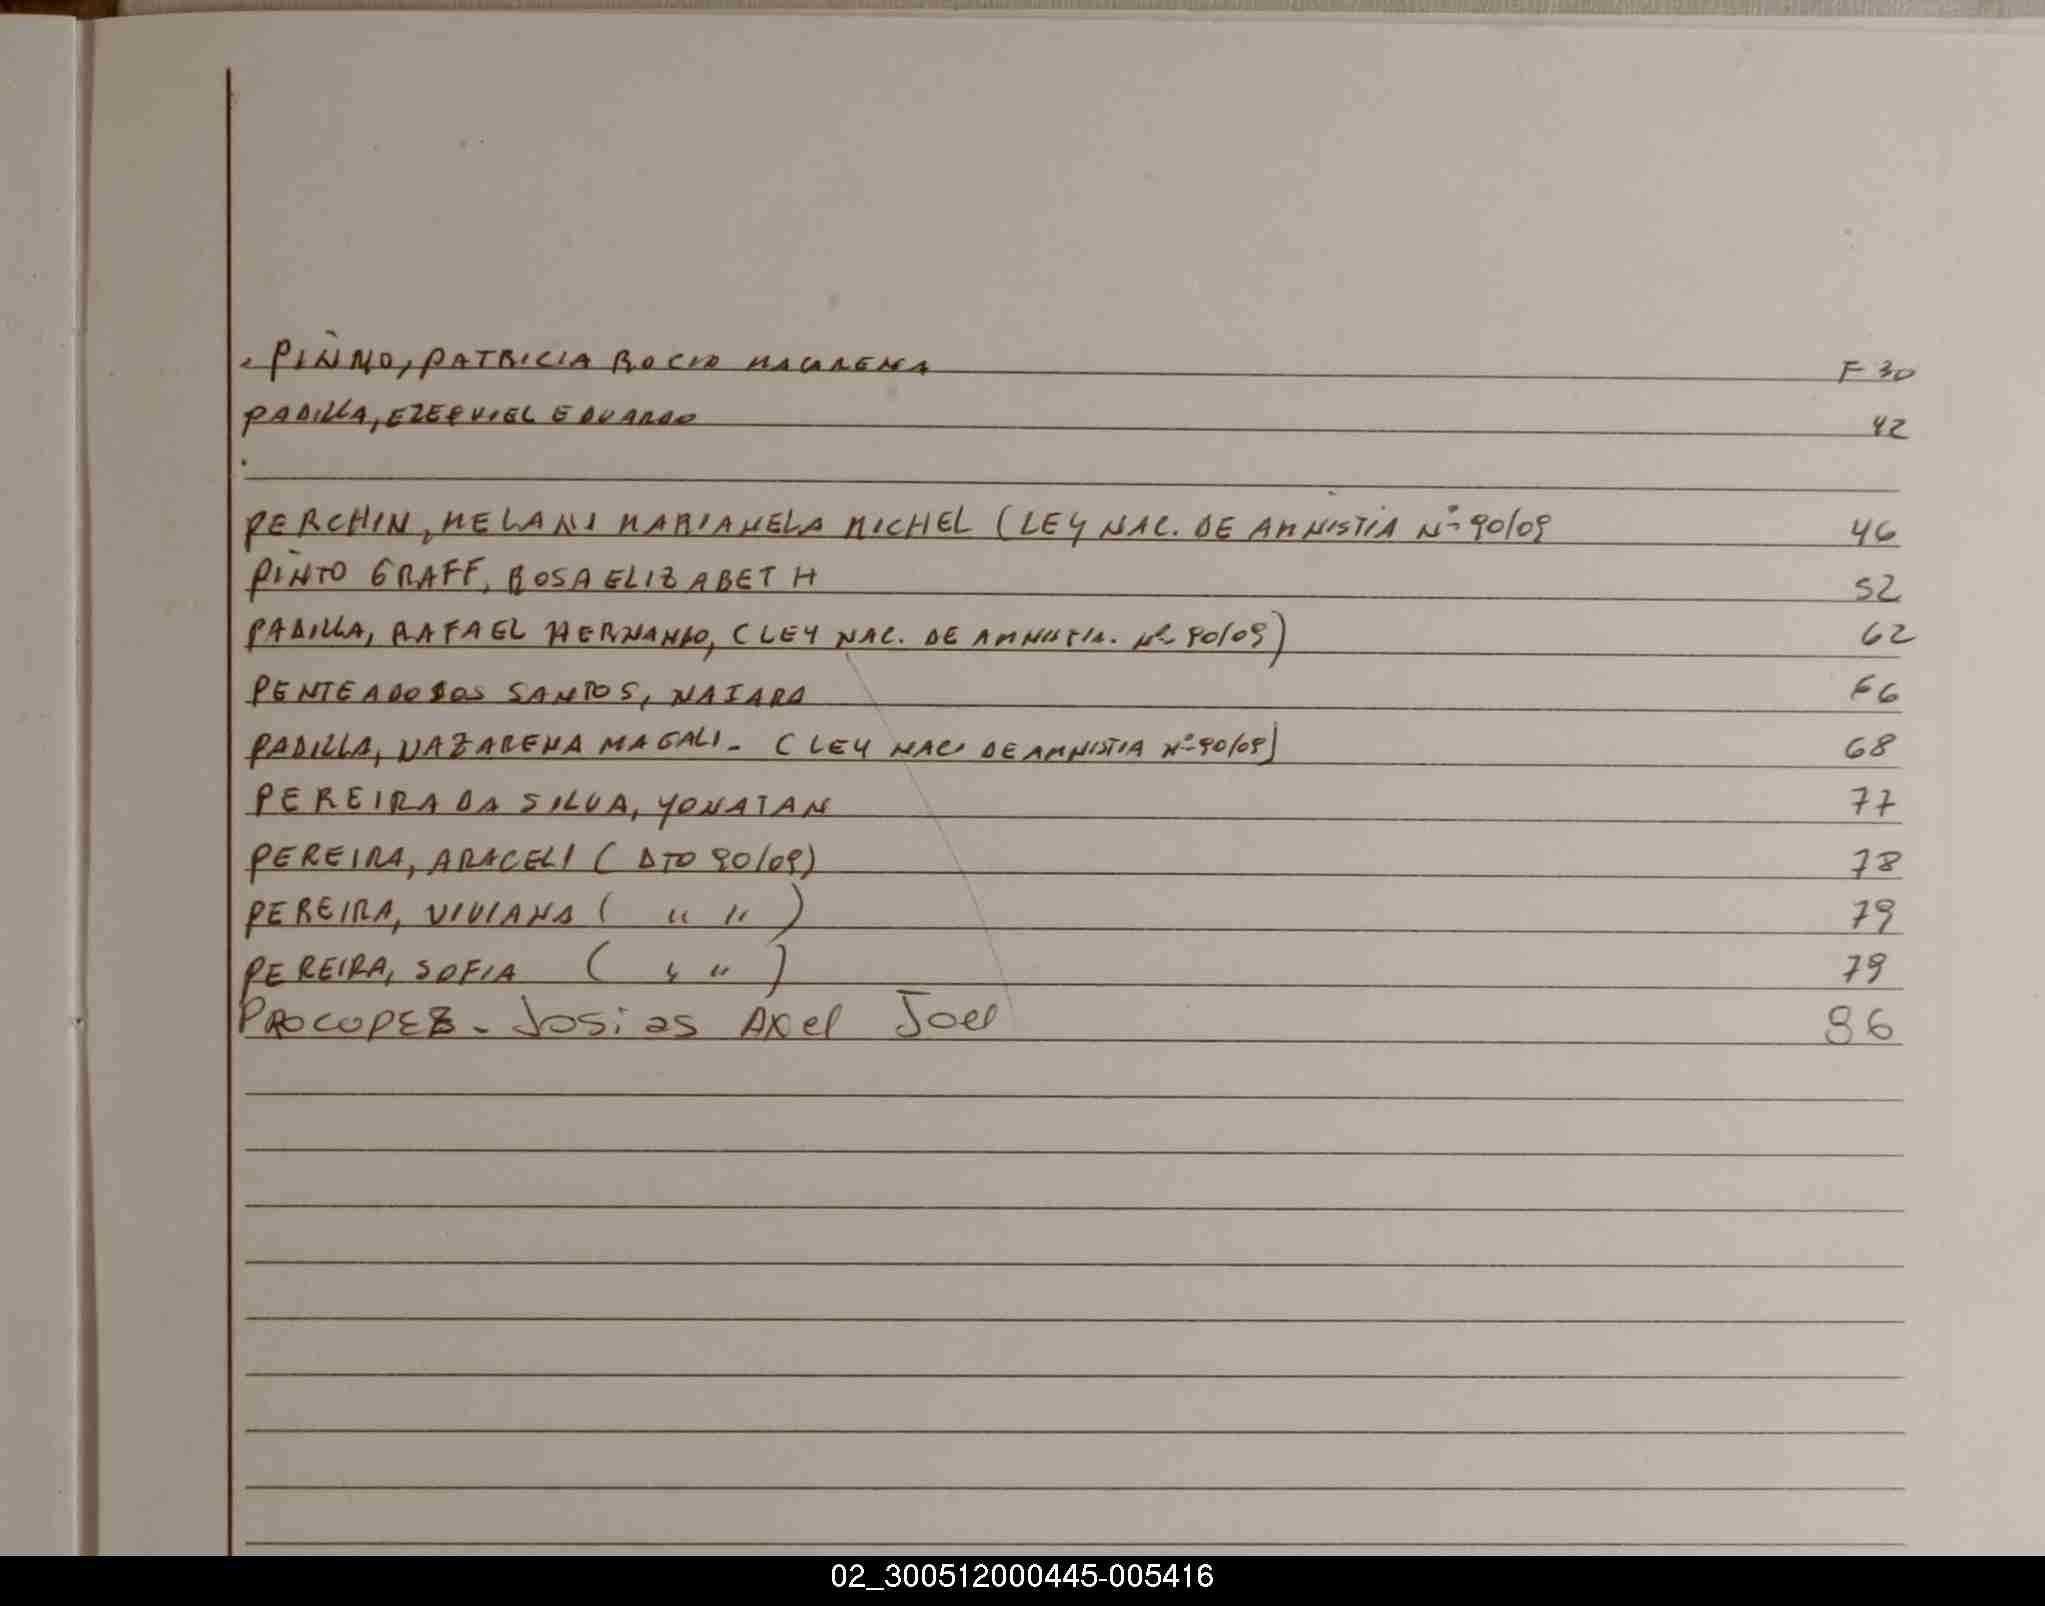 PIÑNO, PATRICIA ROCIO MACARENA F 30
PADILLA, EZEQUIEL EDUARDO 42
PERCHIN, MELANI MARIANELA MICHEL (LEY NAC. DE AMNISTIA Nº 90/09 46
PINTO GRAFF, ROSA ELIZABETH 52
PADILLA, RAFAEL HERNANDO, (LEY NAC. DE AMNISTIA. Nº 90/09) 62
PENTEADO DOS SANTOS, NAIARA 66
PADILLA, NAZARENA MAGALI - (LEY NAC. DE AMNISTIA Nº 90/09) 68
PEREIRA DA SILVA, YONATAN 77
PEREIRA, ARACELI (DTO 90/09) 78
PEREIRA, VIVIANA ( " " ) 79
PEREIRA, SOFIA ( " " ) 79
PROCOPEZ - Josias Axel Joel 96
02_300512000445-005416